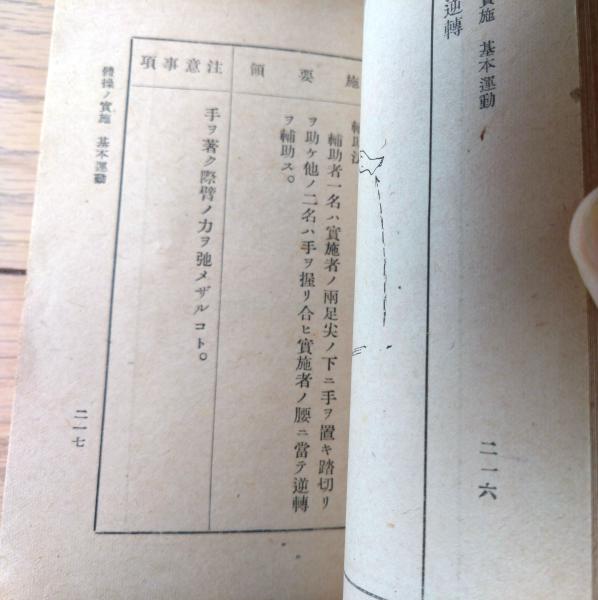 實施 基本運動
逆轉
二一六
施要領
輔助法
輔助者一名ハ實施者ノ兩足尖ノ下ニ手ヲ置キ踏切リ
ヲ助ケ他ノ二名ハ手ヲ握リ合ヒ實施者ノ腰ニ當テ逆轉
ヲ輔助ス。
注意事項
手ヲ著ク際臂ノ力ヲ弛メザルコト。
體操ノ實施 基本運動
二一七